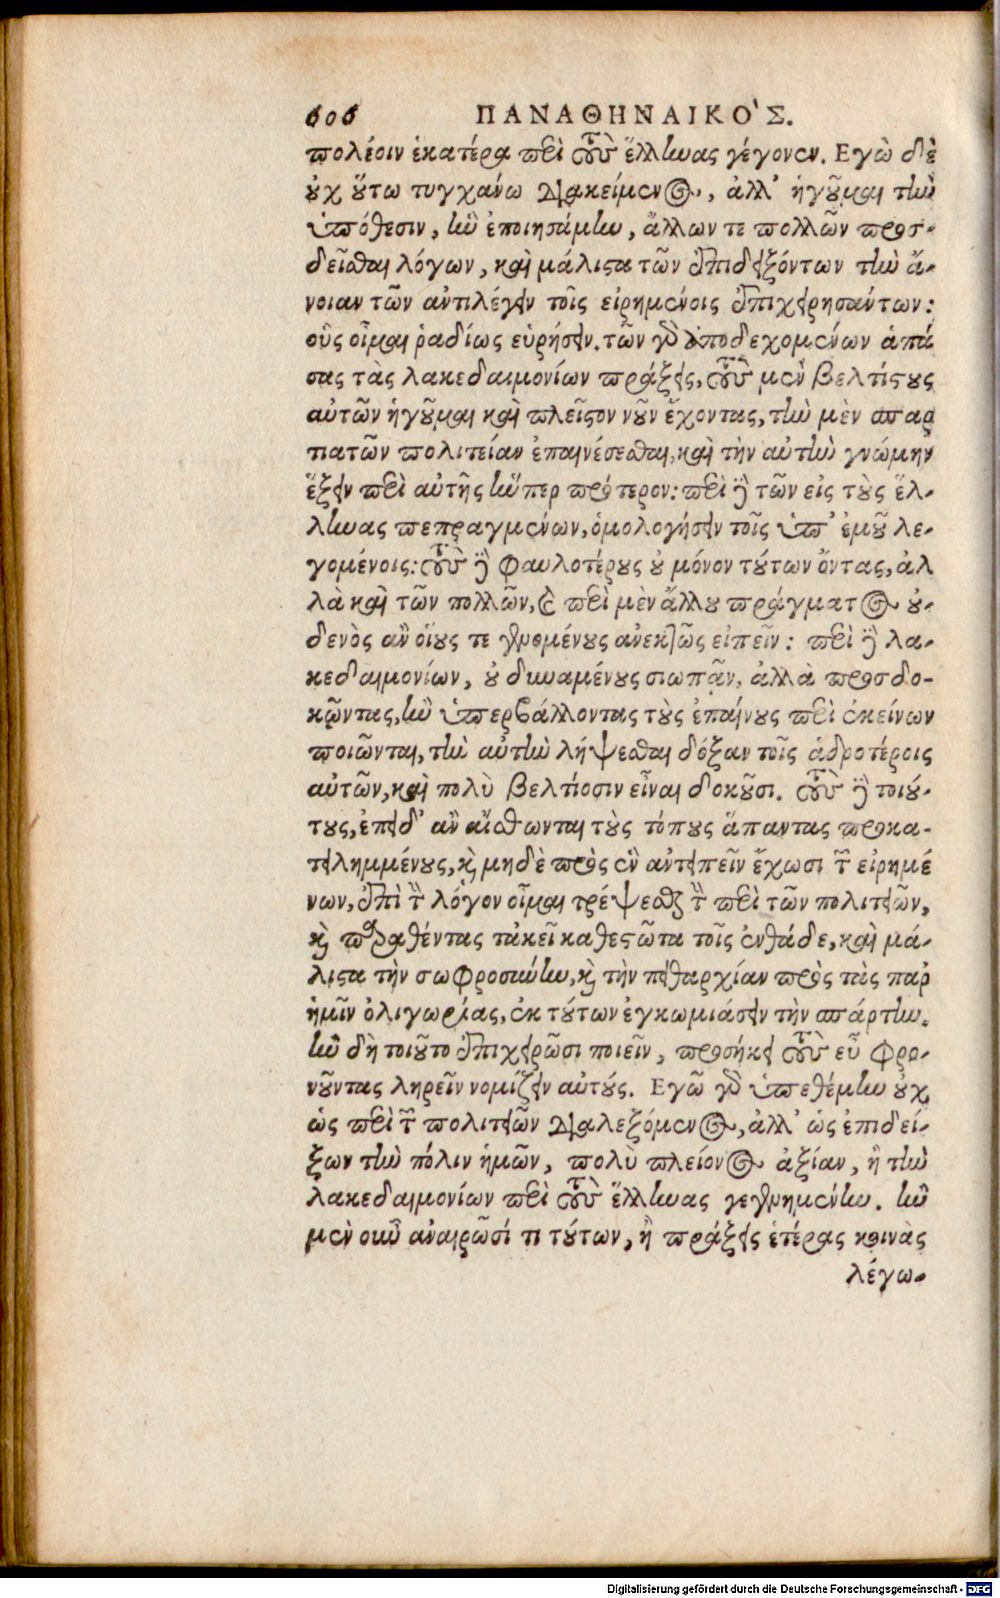 606 ΠΑΝΑΘΗΝΑΙΚΟ'Σ.
πολέοιν ἑκατέρα περὶ τοὺς ἕλληνας γέγονεν. Εγὼ δὲ
οὐχ οὕτω τυγχάνω διακείμενος, ἀλλ' ἡγοῦμαι τὴν
ὑπόθεσιν, ἣν ἐποιησάμην, ἄλλων τε πολλῶν προσ-
δεῖσθαι λόγων, καὶ μάλιστα τῶν ἐπιδειξόντων τὴν ἄ-
νοιαν τῶν ἀντιλέγειν τοῖς εἰρημένοις ἐπιχειρησάντων:
οὓς οἶμαι ῥαδίως εὑρήσειν. τῶν γὰρ ἀποδεχομένων ἁπά
σας τὰς λακεδαιμονίων πράξεις, τοὺς μὲν βελτίστους
αὐτῶν ἡγοῦμαι καὶ πλεῖστον νοῦν ἔχοντας, τὴν μὲν σπαρ
τιατῶν πολιτείαν ἐπαινέσεσθαι, καὶ τὴν αὐτὴν γνώμην
ἕξειν περὶ αὐτῆς ἥνπερ πρότερον: περὶ δὲ τῶν εἰς τοὺς ἕλ-
ληνας πεπραγμένων, ὁμολογήσειν τοῖς ὑπ' ἐμοῦ λε-
γομένοις: τοὺς δὲ φαυλοτέρους οὐ μόνον τούτων ὄντας, ἀλ
λὰ καὶ τῶν πολλῶν, καὶ περὶ μὲν ἄλλου πράγματος οὐ-
δενὸς ἂν οἵους τε γενομένους ἀνεκτῶς εἰπεῖν: περὶ δὲ λα-
κεδαιμονίων, οὐ δυναμένους σιωπᾶν, ἀλλὰ προσδο-
κῶντας, ἢν ὑπερβάλλοντας τοὺς ἐπαίνους περὶ ἐκείνων
ποιῶνται, τὴν αὐτὴν λήψεσθαι δόξαν τοῖς ἁδροτέροις
αὐτῶν, καὶ πολὺ βελτίοσιν εἶναι δοκοῦσι. τοὺς δὲ τοιού-
τους, ἐπειδ' ἂν αἴσθωνται τοὺς τόπους ἅπαντας προκα-
τειλημμένους, καὶ μηδὲ πρὸς ἓν ἀντειπεῖν ἔχωσι τῶν εἰρημέ
νων, ἐπὶ τὸν λόγον οἶμαι τρέψεσθαι τὸν περὶ τῶν πολιτειῶν,
καὶ παραθέντας τἀκεῖ καθεστῶτα τοῖς ἐνθάδε, καὶ μά-
λιστα τὴν σωφροσύνην, καὶ τὴν πειθαρχίαν πρὸς τὰς παρ
ἡμῖν ὀλιγωρίας, ἐκ τούτων ἐγκωμιάσειν τὴν σπάρτην.
ἢν δὴ τοιοῦτο ἐπιχειρῶσι ποιεῖν, προσήκει τοὺς εὖ φρο-
νοῦντας ληρεῖν νομίζειν αὐτούς. Εγῶ γὰρ ὑπεθέμην οὐχ
ὡς περὶ τῶν πολιτειῶν διαλεξόμενος, ἀλλ' ὡς ἐπιδεί-
ξων τὴν πόλιν ἡμῶν, πολὺ πλείονος ἀξίαν, ἢ τὴν
λακεδαιμονίων περὶ τοὺς ἕλληνας γεγενημένην. ἢν
μὲν οὖν ἀναιρῶσί τι τούτων, ἢ πράξεις ἑτέρας κοινὰς
λέγω-
Digitalisierung gefördert durch die Deutsche Forschungsgemeinschaft - DFG